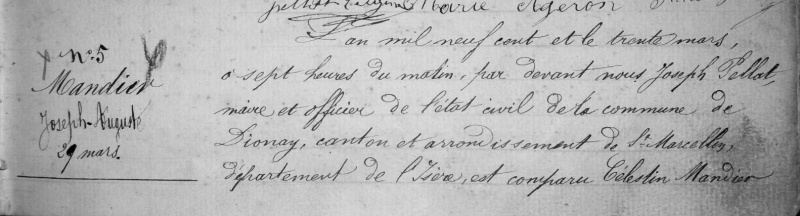 Marie Ageron
N° 5
Mandier
Joseph-Auguste
29 mars.
an mil neuf cent et le trente mars,
a sept heures du matin, par devant nous Joseph Pellat
maire et officier de l'état civil de la commune de
Dionay, canton et arrondissement de St Marcellin,
département de l'Isère, est comparu Célestin Mandier